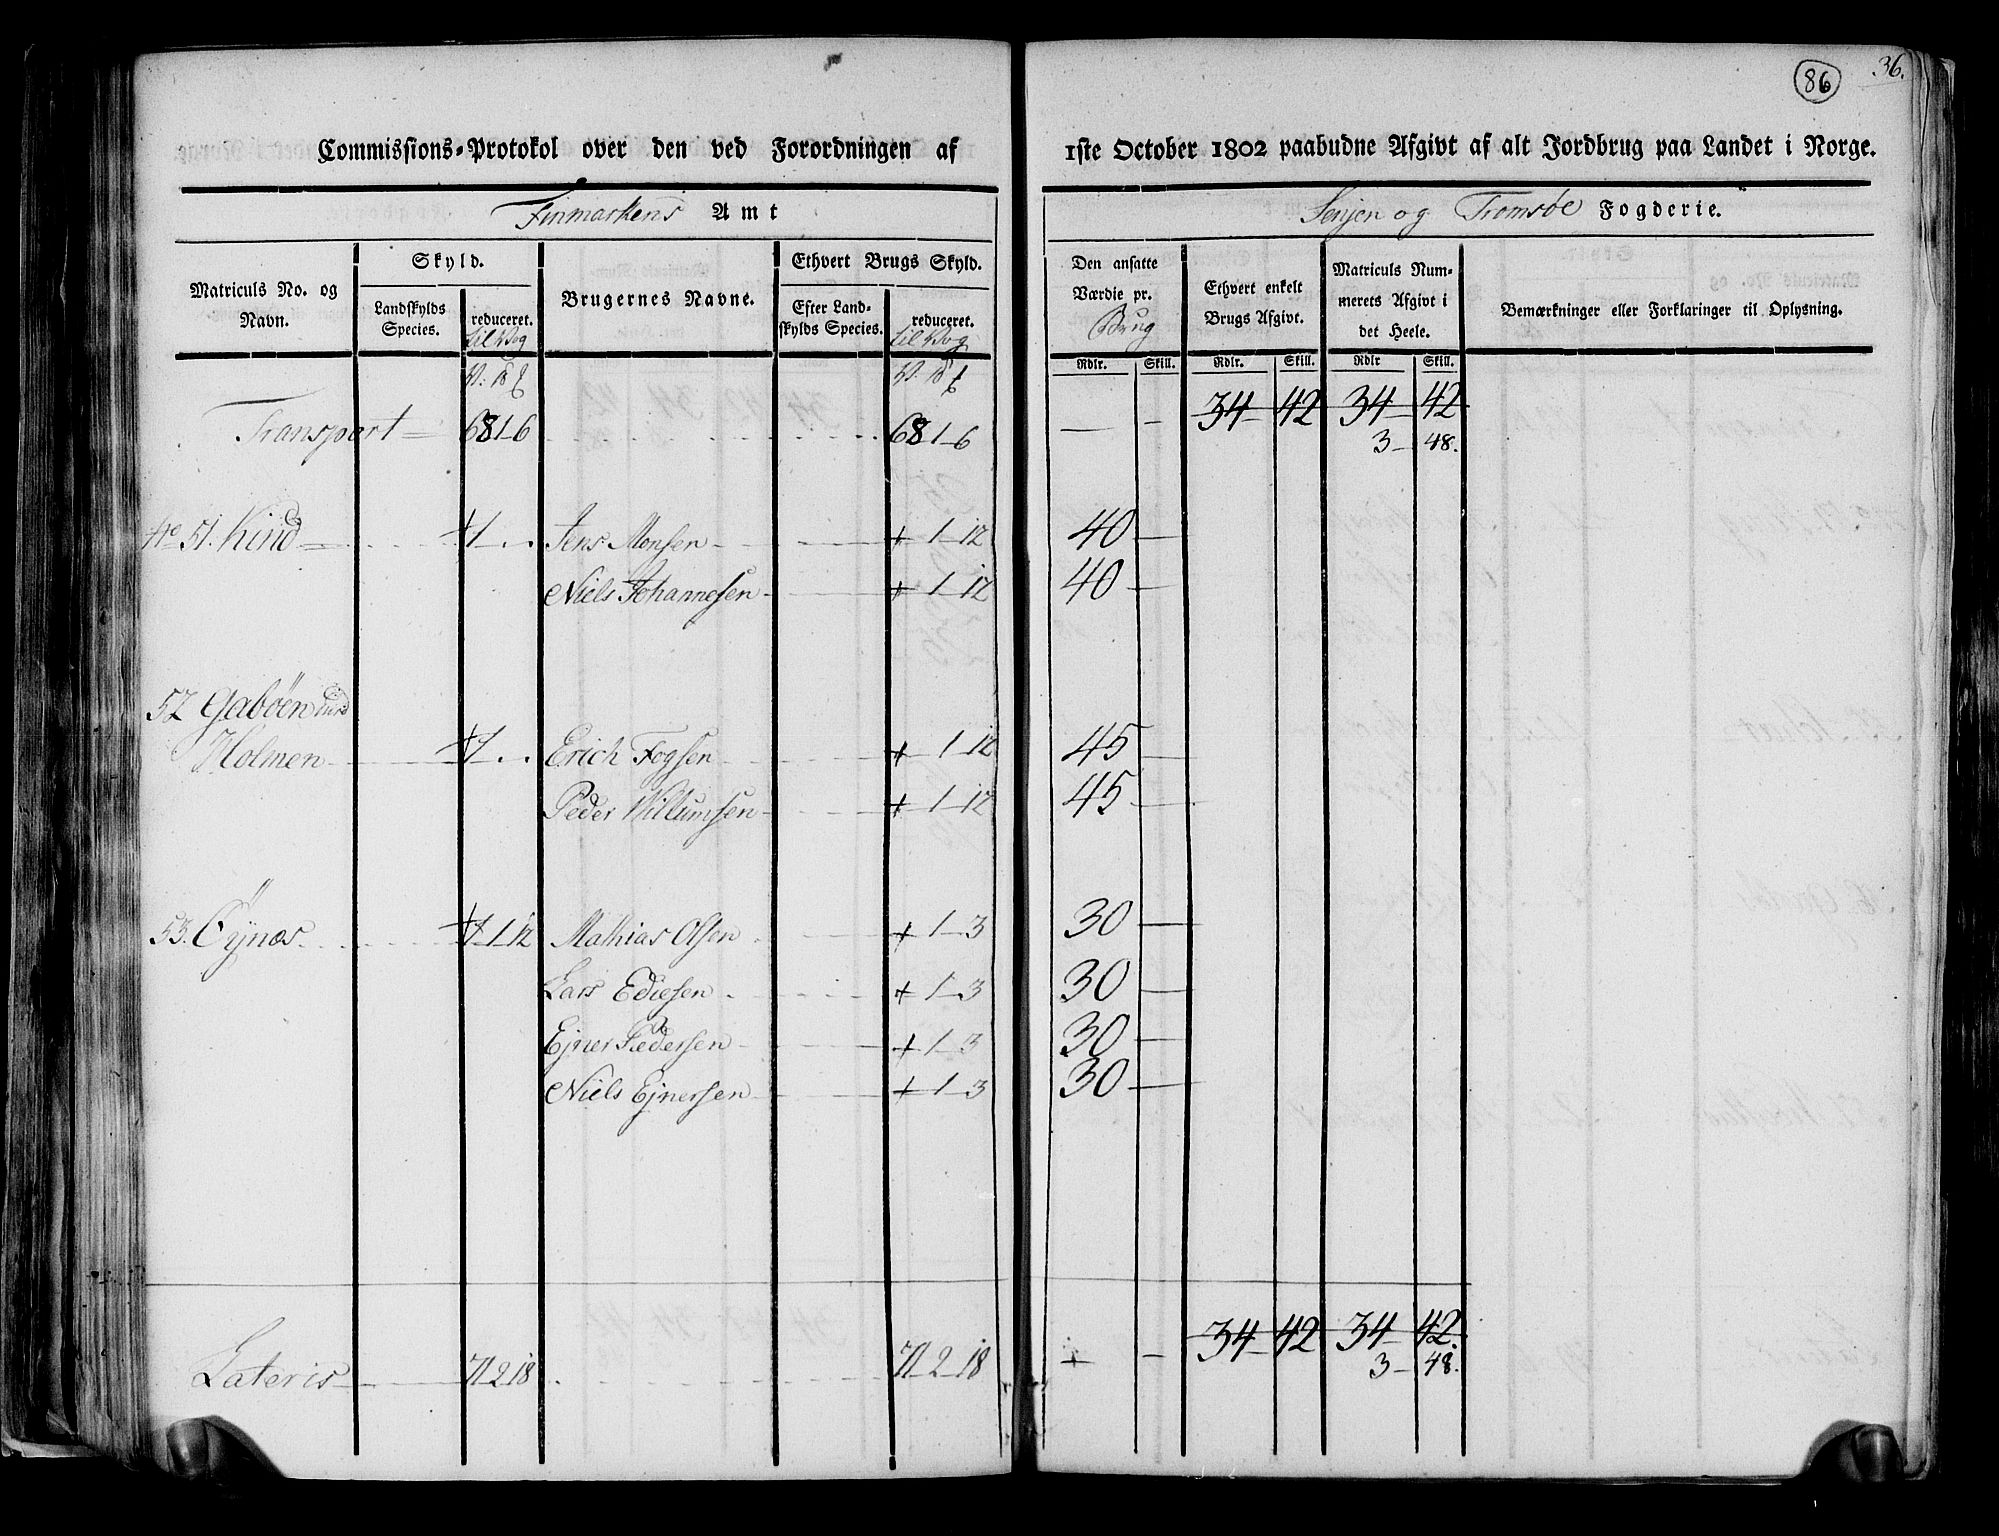 86
36.
Commissions-Protokol over den ved Forordningen af 1ste October 1802 paabudne Afgivt af alt Jordbrug paa Landet i Norge.
Finmarkens Amt Senjen og Tromsøe Fogderie.
Matriculs No. og Navn.
Skyld.
Landskylds Species.
reduceret. til Vog
Brugernes Navne.
Ethvert Brugs Skyld.
Efter Landskylds Species.
reduceret. til Vog
Den ansatte Værdie pr. Brug
Ethvert enkelt Brugs Afgivt.
Matriculs Nummerets Afgivt i det Heele.
Bemærkninger eller Forklaringer til Oplysning.
Rdlr. Skill. Rdlr. Skill. Rdlr Skill.
Transport 68 1 6 68 1 6 34 42 34 42
3 48.
No 51. Kind 1 Jens Monsen + 1 12 40
Niels Johannesen + 1 12 40
52 Gaböen
Holmen 1 Erich Fogsen + 1 12 45
Peder Willumsen + 1 12 45
53. Öynæs 1 1 12 Mathias Olsen + 1 3 30
Lars Ediesen + 1 3 30
Ejner Pedersen + 1 3 30
Niels Ejnersen + 1 3 30
Lateris 71 2 18 71 2 18 34 42 34 42.
3 48.